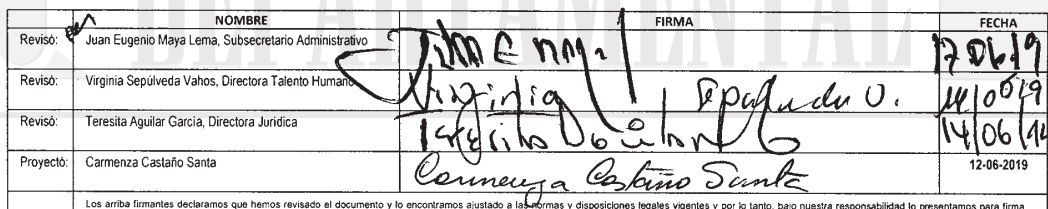 DEPARTAMENTAL
NOMBRE FIRMA FECHA
Revisó: Juan Eugenio Maya Lema, Subsecretario Administrativo
Revisó: Virginia Sepúlveda Vahos, Directora Talento Humano Virginia Sepulveda V.
Revisó: Teresita Aguilar García, Directora Jurídica Teresita Aguilar G 14/06/19
Proyectó: Carmenza Castaño Santa Carmenza Castaño Santa 12-06-2019
Los arriba firmantes declaramos que hemos revisado el documento y lo encontramos ajustado a las normas y disposiciones legales vigentes y por lo tanto, bajo nuestra responsabilidad lo presentamos para firma